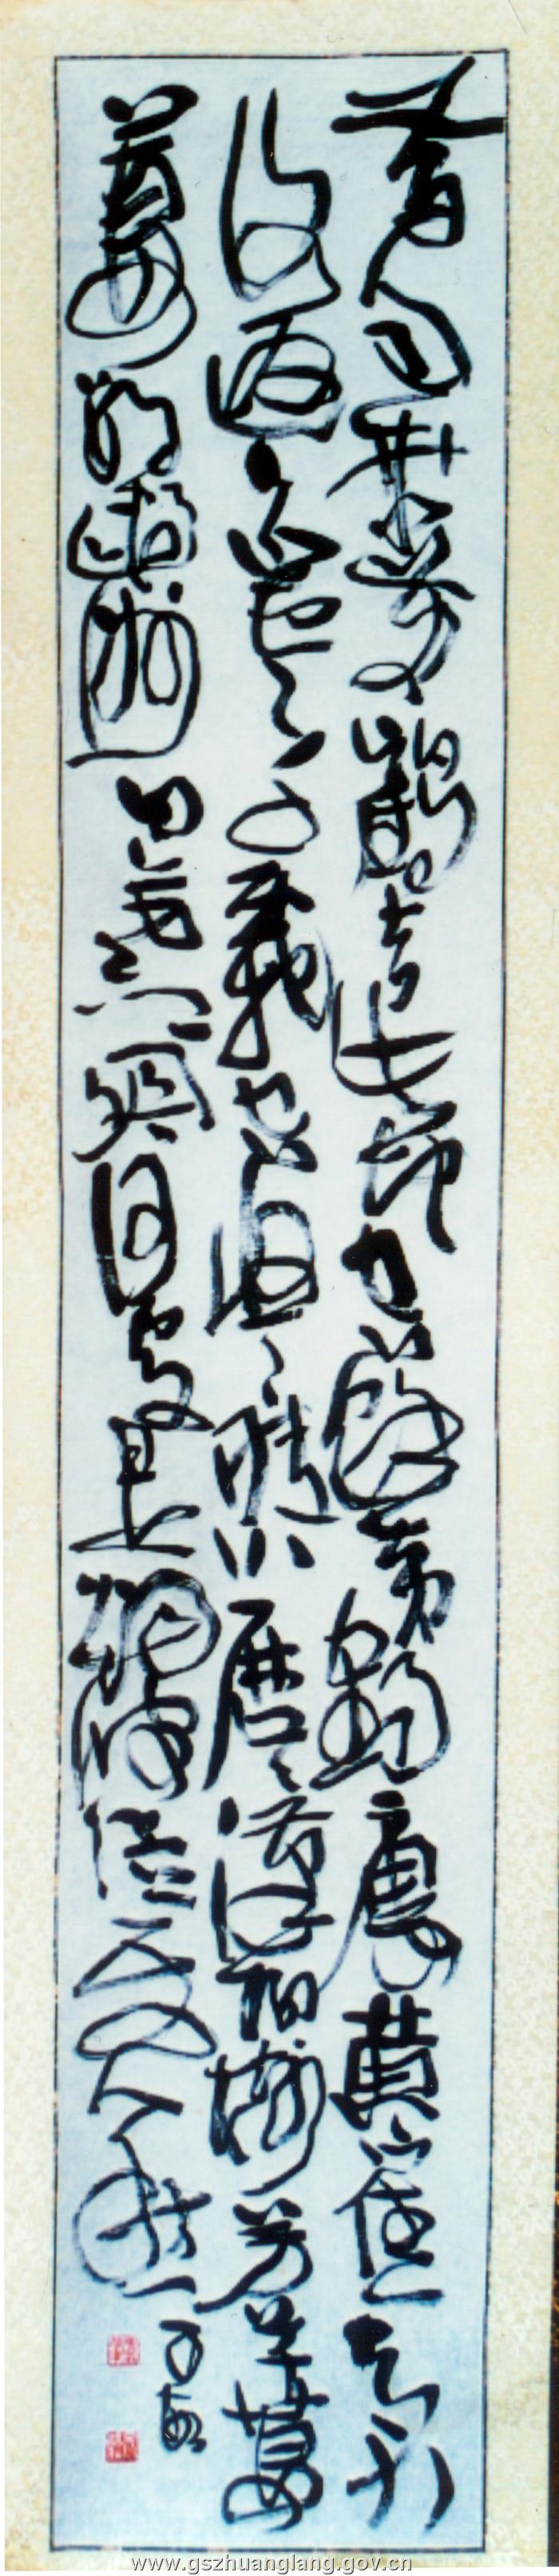 昔人已乘黄鹤去此地空余黄鹤楼黄鹤一去不
复返白云千载空悠悠晴川历历汉阳树芳草萋
萋鹦鹉洲日暮乡关何处是烟波江上使人愁
www.gszhuanglang.gov.cn